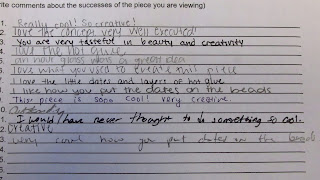 rite comments about the successes of the piece you are viewing)
1. Really cool! So creative!
2. love the concept very well executed!
3. You are very tasteful in beauty and creativity
love the hot glue,
glass was a great idea
love what you used to this piece
love the little dates and layers of hot glue
I like how you put the dates on the beads
9. This piece is sooo cool! very creative.
0.
1. I would have never thought to do something so cool.
2. Creative
3. Very cool how you put dates on the beads
4.
5.